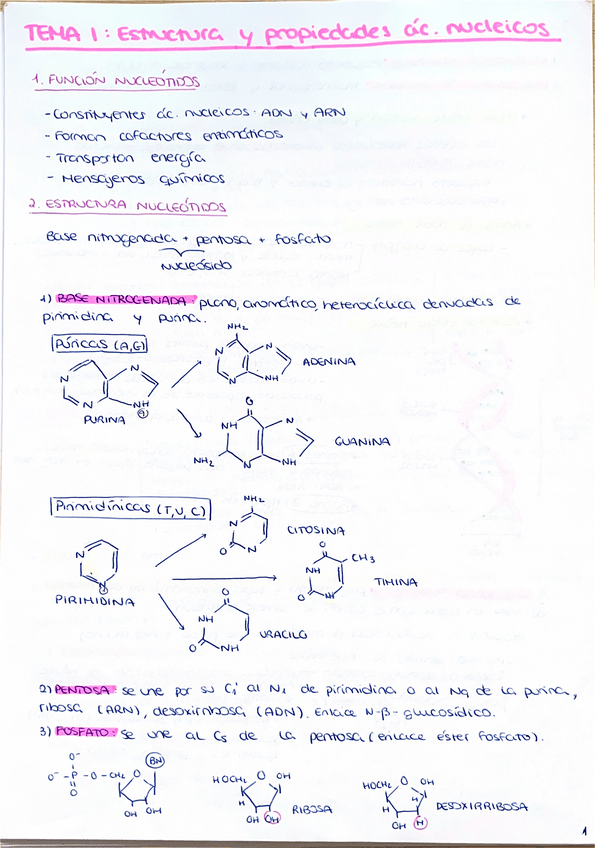 TEMA 1: Estructura y propiedades ác. nucleicos
1. FUNCIÓN NUCLEÓTIDOS
- Constituyentes ác. nucleicos: ADN y ARN
- Forman cofactores enzimáticos
- Transportan energía
- Mensajeros químicos
2. ESTRUCTURA NUCLEÓTIDOS
Base nitrogenada + pentosa + fosfato
nucleósido
1) BASE NITROGENADA: plano, aromático, heterocíclica derivadas de
pirimidina y purina.
Púricas (A,G)
NH2
N
N
N
NH
ADENINA
N
N
N
NH
9
PURINA
O
NH
N
NH2
N
NH
GUANINA
Pirimidínicas (T,U,C)
NH2
N
O
N
CITOSINA
N
N
PIRIMIDINA
O
CH3
NH
O
NH
TIMINA
O
NH
O
NH
URACILO
2) PENTOSA: se une por su C1' al N1 de pirimidina o al N9 de la purina,
ribosa (ARN), desoxirribosa (ADN). Enlace N-β-glucosídico.
3) FOSFATO: se une al C5 de la pentosa (enlace éster fosfato).
O-
O- - P - O - CH2
O
O
BN
OH OH
HOCH2 O OH
H H
OH OH
RIBOSA
HOCH2 O OH
H H
OH H
DESOXIRRIBOSA
1